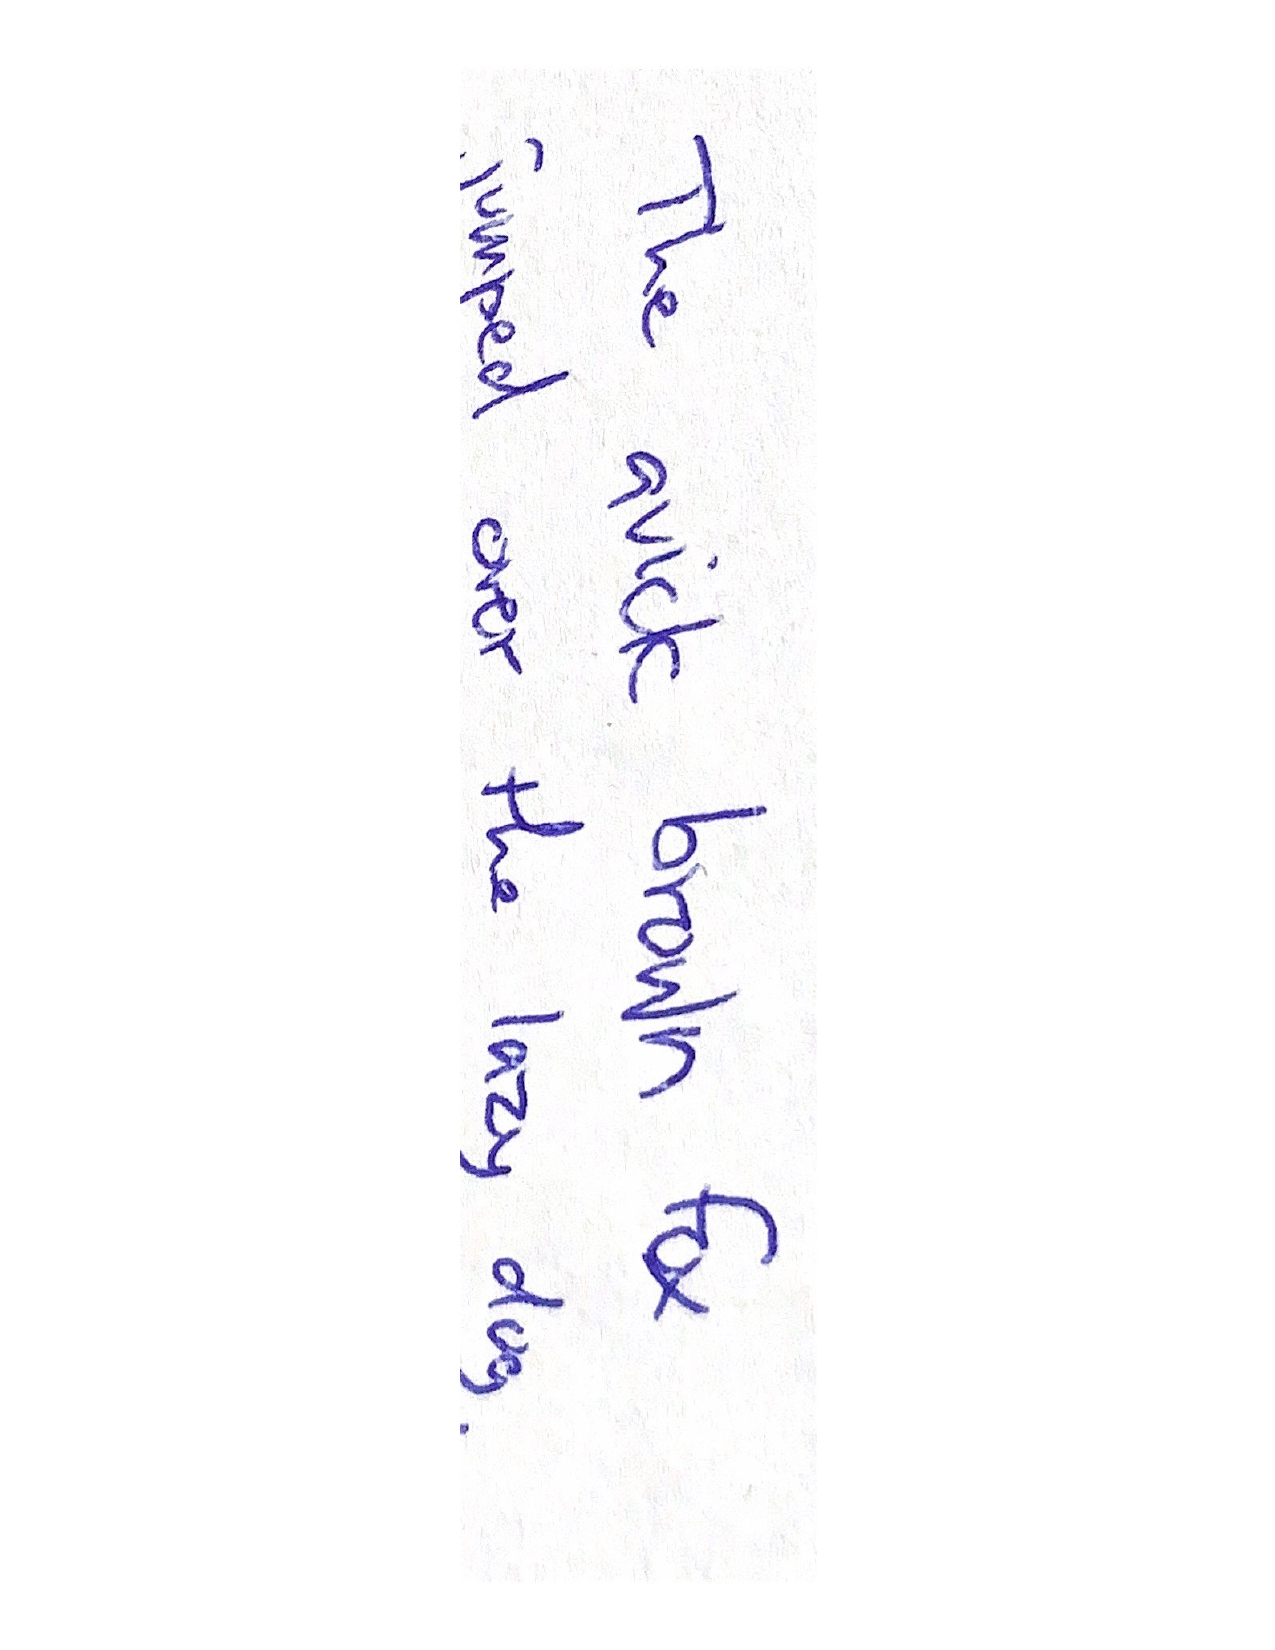 The quick brown fox
jumped over the lazy dog.